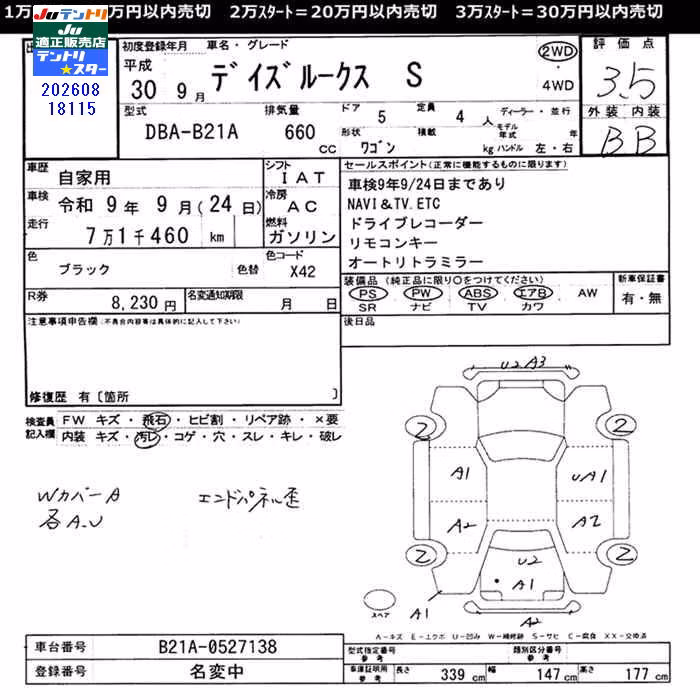 1万 万円以内売切 2万スタート=20万円以内売切 3万スタート=30万円以内売切
JUテントリ
JU
適正販売店
テントリ
★スター
202608
18115
初度登録年月 車名・グレード
平成 30 9月 デイズルークス S
2WD
・
4WD
評価点
3.5
外装 内装
B B
型式 排気量 ドア 定員 ディーラー・並行
DBA-B21A 660 cc 5 4人
形状 積載 モデル年式 年
ワゴン kg ハンドル 左・右
車歴 自家用
シフト IAT
車検 令和 9年 9月(24日)
冷房 AC
走行 7万1千460 km
燃料 ガソリン
色 ブラック 色替
色コード X42
R券 8,230円 名変通知期限 月 日
セールスポイント(正常に機能するものに限ります)
車検9年9/24日まであり
NAVI&TV.ETC
ドライブレコーダー
リモコンキー
オートリトラミラー
装備品(純正品に限り○をつけてください) 新車保証書
PS PW ABS エアB AW 有・無
SR ナビ TV カワ
後日品
注意事項申告欄(不具合内容等は具体的に記入して下さい)
修復歴 有〔箇所 〕
検査員記入欄
FW キズ・飛石・ヒビ割・リペア跡・×要
内装 キズ・汚レ・コゲ・穴・スレ・キレ・破レ
Wカバー A
各A.U
エンドパネル歪
U2 A3
2 2
A1 UA1
A2 A2
2 2
U2
A1
A1 A2
スペア
A-キズ E-エクボ U-凹み W-補修跡 S-サビ C-腐食 XX-交換済
車台番号 B21A-0527138
登録番号 名変中
型式指定番号 参考 類別区分番号 参考
車庫証明用 参考 長さ 339 cm 幅 147 cm 高さ 177 cm